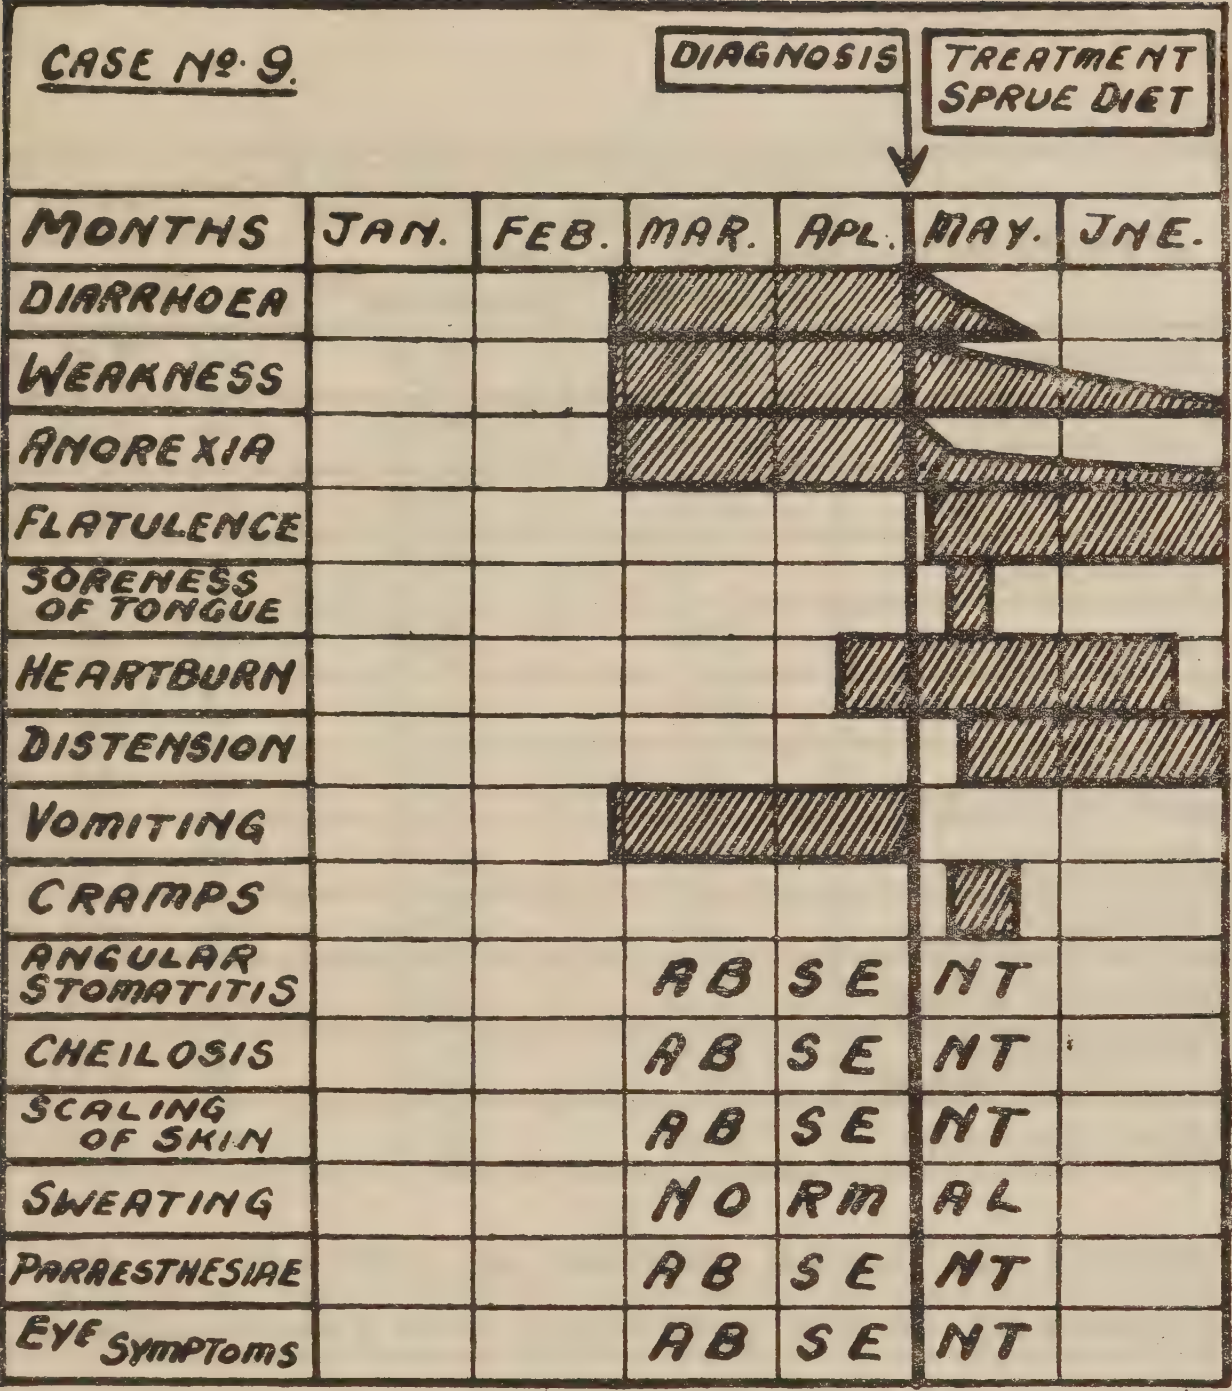 CASE No. 9.
DIAGNOSIS
TREATMENT
SPRUE DIET
MONTHS JAN. FEB. MAR. APL. MAY. JNE.
DIARRHOEA
WEAKNESS
ANOREXIA
FLATULENCE
SORENESS
OF TONGUE
HEARTBURN
DISTENSION
VOMITING
CRAMPS
ANGULAR
STOMATITIS ABSENT
CHEILOSIS ABSENT
SCALING
OF SKIN ABSENT
SWEATING NORMAL
PARAESTHESIAE ABSENT
EYE SYMPTOMS ABSENT